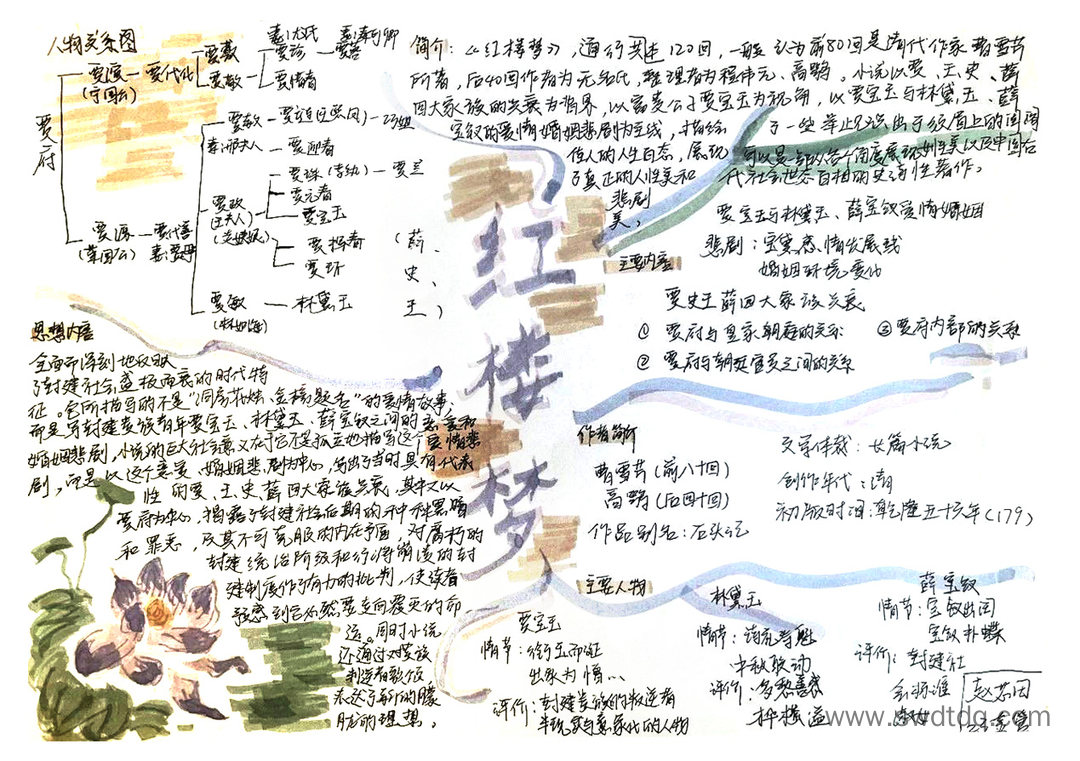 人物关系图
贾府
贾演 — 贾代化
(宁国公)
贾敷
贾敬
贾珍 — 贾蓉
贾惜春
贾源 — 贾代善
(荣国公) 妻:贾母
贾赦 — 贾琏(王熙凤) — 巧姐
妻:邢夫人 — 贾迎春
贾政
(王夫人)
(赵姨娘)
贾珠(李纨) — 贾兰
贾元春
贾宝玉
贾探春
贾环
贾敏 — 林黛玉
(林如海)
(薛、史、王)
简介:《红楼梦》,通行共120回,一般认为前80回是清代作家曹雪芹
所著,后40回作者为无名氏,整理者为程伟元、高鹗。小说以贾、王、史、薛
四大家族的兴衰为背景,以富贵公子贾宝玉为视角,以贾宝玉与林黛玉、薛
宝钗的爱情婚姻悲剧为主线,描绘了一些举止见识出于须眉之上的闺阁
佳人的人生百态,展现了真正的人性美和悲剧美,
可以是一部从各个角度展现女性美以及中国古
代社会世态百相的史诗性著作。
红楼梦
主要内容
贾宝玉与林黛玉、薛宝钗爱情婚姻
悲剧:宝黛恋情发展线
婚姻环境变化
贾史王薛四大家族兴衰
① 贾府与皇家朝庭的关系 ③ 贾府内部的关系
② 贾府与朝廷官员之间的关系
思想内容
全面而深刻地反映
了封建社会盛极而衰的时代特
征。它所描写的不是“洞房花烛、金榜题名”的爱情故事,
而是写封建贵族青年贾宝玉、林黛玉、薛宝钗之间的恋爱和
婚姻悲剧,小说的巨大社会意义在于它不是孤立地描写这个爱情悲
剧,而是以这个恋爱、婚姻悲剧为中心,写出了当时具有代表
性的贾、王、史、薛四大家族兴衰,其中又以
贾府为中心,揭露了封建社会后期的种种黑暗
和罪恶,及其不可克服的内在矛盾,对腐朽的
封建统治阶级和行将崩溃的封
建制度作了有力的批判,使读者
预感到它必然要走向覆灭的命
运。同时小说
还通过对贵族
叛逆者歌颂,
表达了新的朦
胧的理想。
作者简介
曹雪芹(前八十回)
高鹗(后四十回)
作品别名:石头记
文学体裁:长篇小说
创作年代:清
初版时间:乾隆五十六年(179)
主要人物
贾宝玉
情节:衔玉而诞
出家为僧…
评价:封建贵族的叛逆者
林黛玉
情节:
中秋联动
评价:多愁善感
才华横溢
薛宝钗
情节:宝钗出闺
宝钗扑蝶
评价:封建社
会标准
淑女
www.swdtdq.com